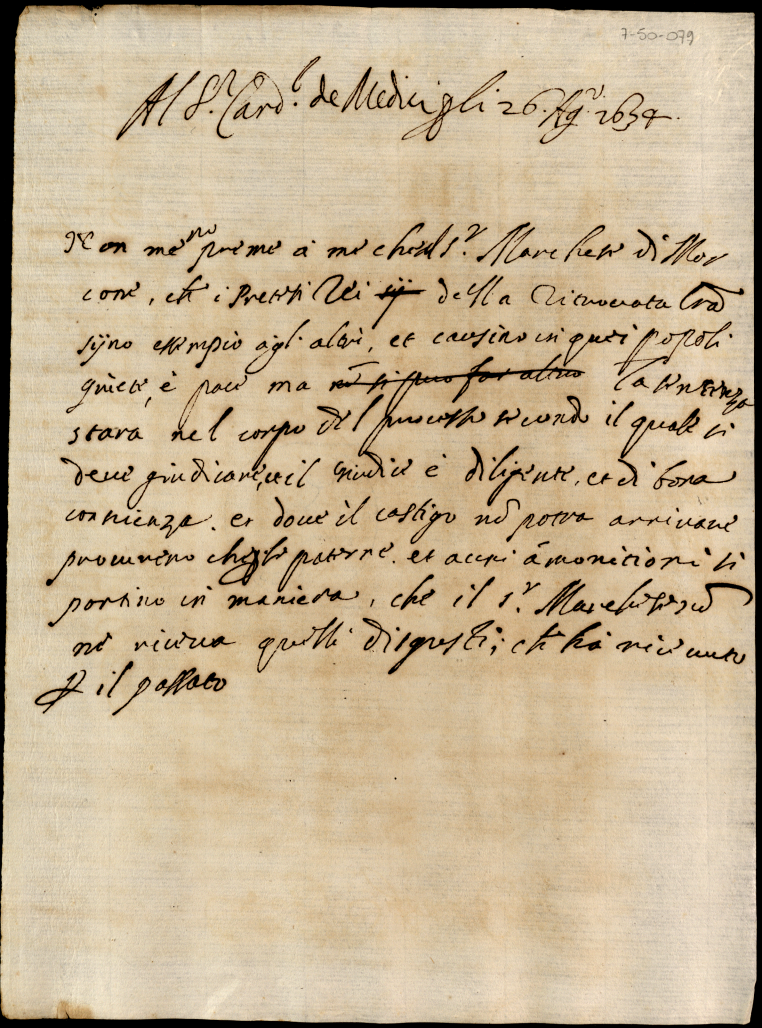 7-50-079
Al S.r Card.l de Medici gli 26. Ag.o 1634.
Non meno preme à me che al S.r Marchese di Mor
cone, ch i Preteti Rei sij della ritrovata lrã
sijno essempio agl'altri, et causino in quei popoli
quiete, è pace ma nõ si puo far altro la sentenza
stara nel corpo del processo secondo il quale si
deve giudicare, et il Giudice è diligente, et di bona
conscienza. et dove il castigo nõ potra arrivare
procurero che le paterne. et acri ámonitioni si
portino in maniera, che il S.r Marchese nõ
ne riceva quelli disgusti, ch hà ricevuto
p il passato